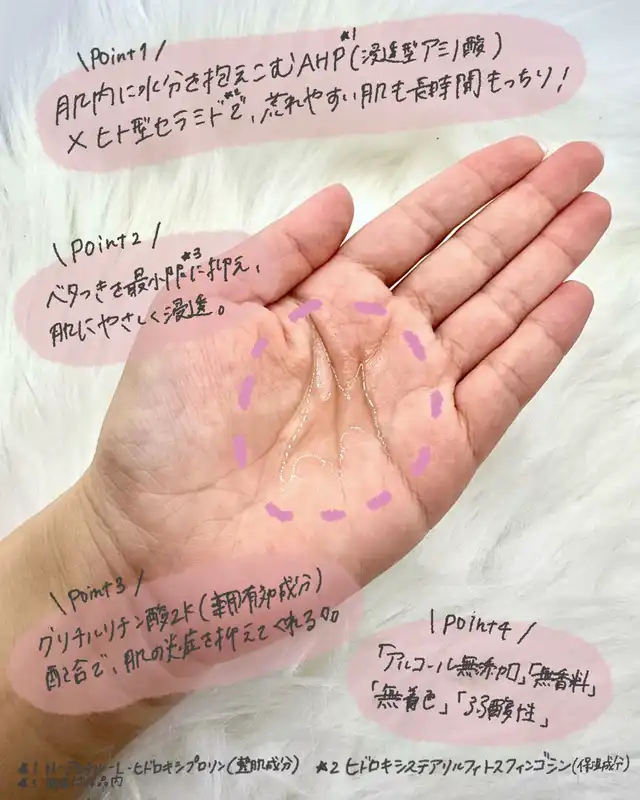 \ Point1 /
肌内に水分を抱えこむAHP★1(浸透型アミノ酸)
×ヒト型セラミド★2"2"、荒れやすい肌も長時間もっちり！
\ Point2 /
ベタつきを最小限★3に抑え、
肌にやさしく浸透。
\ Point3 /
グリチルリチン酸2K(薬用有効成分)
配合で、肌の炎症を抑えてくれる
\ Point4 /
「アルコール無添加」「無香料」
「無着色」「弱酸性」
★1 N-アセチル-L-ヒドロキシプロリン(整肌成分) ★2 ヒドロキシステアリルフィトスフィンゴシン(保湿成分)
★3